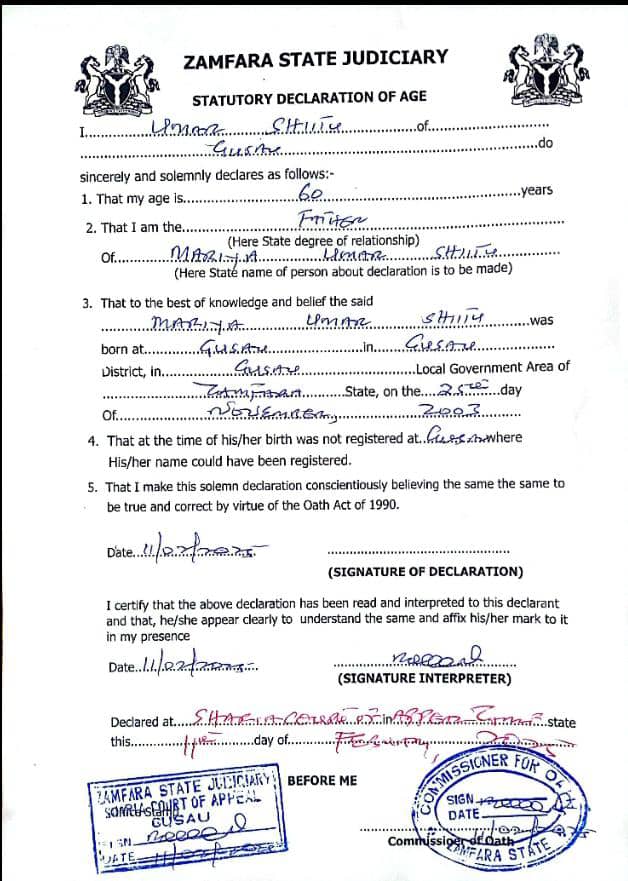 ZAMFARA STATE JUDICIARY
STATUTORY DECLARATION OF AGE
I..........UMAR SHIITU..........of..........
..........GUSAU..........do
sincerely and solemnly declares as follows:-
1. That my age is..........60..........years
2. That I am the..........FATHER..........
(Here State degree of relationship)
Of..........MARIYA UMAR SHIITU
(Here State name of person about declaration is to be made)
3. That to the best of knowledge and belief the said
..........MARIYA UMAR SHIITU..........was
born at..........GUSAU..........in..........GUSAU..........
District, in..........GUSAU..........Local Government Area of
..........ZAMFARA..........State, on the...25th...day
Of..........NOVEMBER, 2003..........
4. That at the time of his/her birth was not registered at..Gusau where
His/her name could have been registered.
5. That I make this solemn declaration conscientiously believing the same the same to
be true and correct by virtue of the Oath Act of 1990.
Date...11/02/2025...
(SIGNATURE OF DECLARATION)
I certify that the above declaration has been read and interpreted to this declarant
and, that, he/she appear clearly to understand the same and affix his/her mark to it
in my presence
Date..11/02/2025...
(SIGNATURE INTERPRETER)
Declared at.....SHARIA COURT OF APPEAL in state
this..........11th..........day of.....February,
BEFORE ME
ZAMFARA STATE JUDICIARY
SHARIA COURT OF APPEAL
GUSAU
SIGN
DATE
COMMISSIONER FOR OATH
SIGN
DATE 11/02/2025
Commissioner of Oath
ZAMFARA STATE